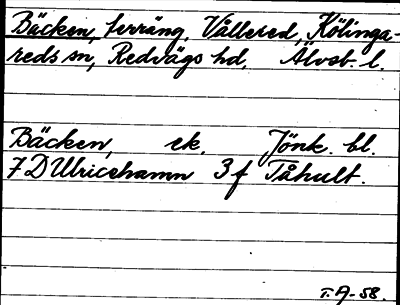 Bäcken, terräng, Vållered, Kölinga-
reds sn, Redvägs hd, Älvsb. l.
Bäcken, ek. Jönk. bl.
7 D Ulricehamn 3 f Tåhult.
T.A-58.